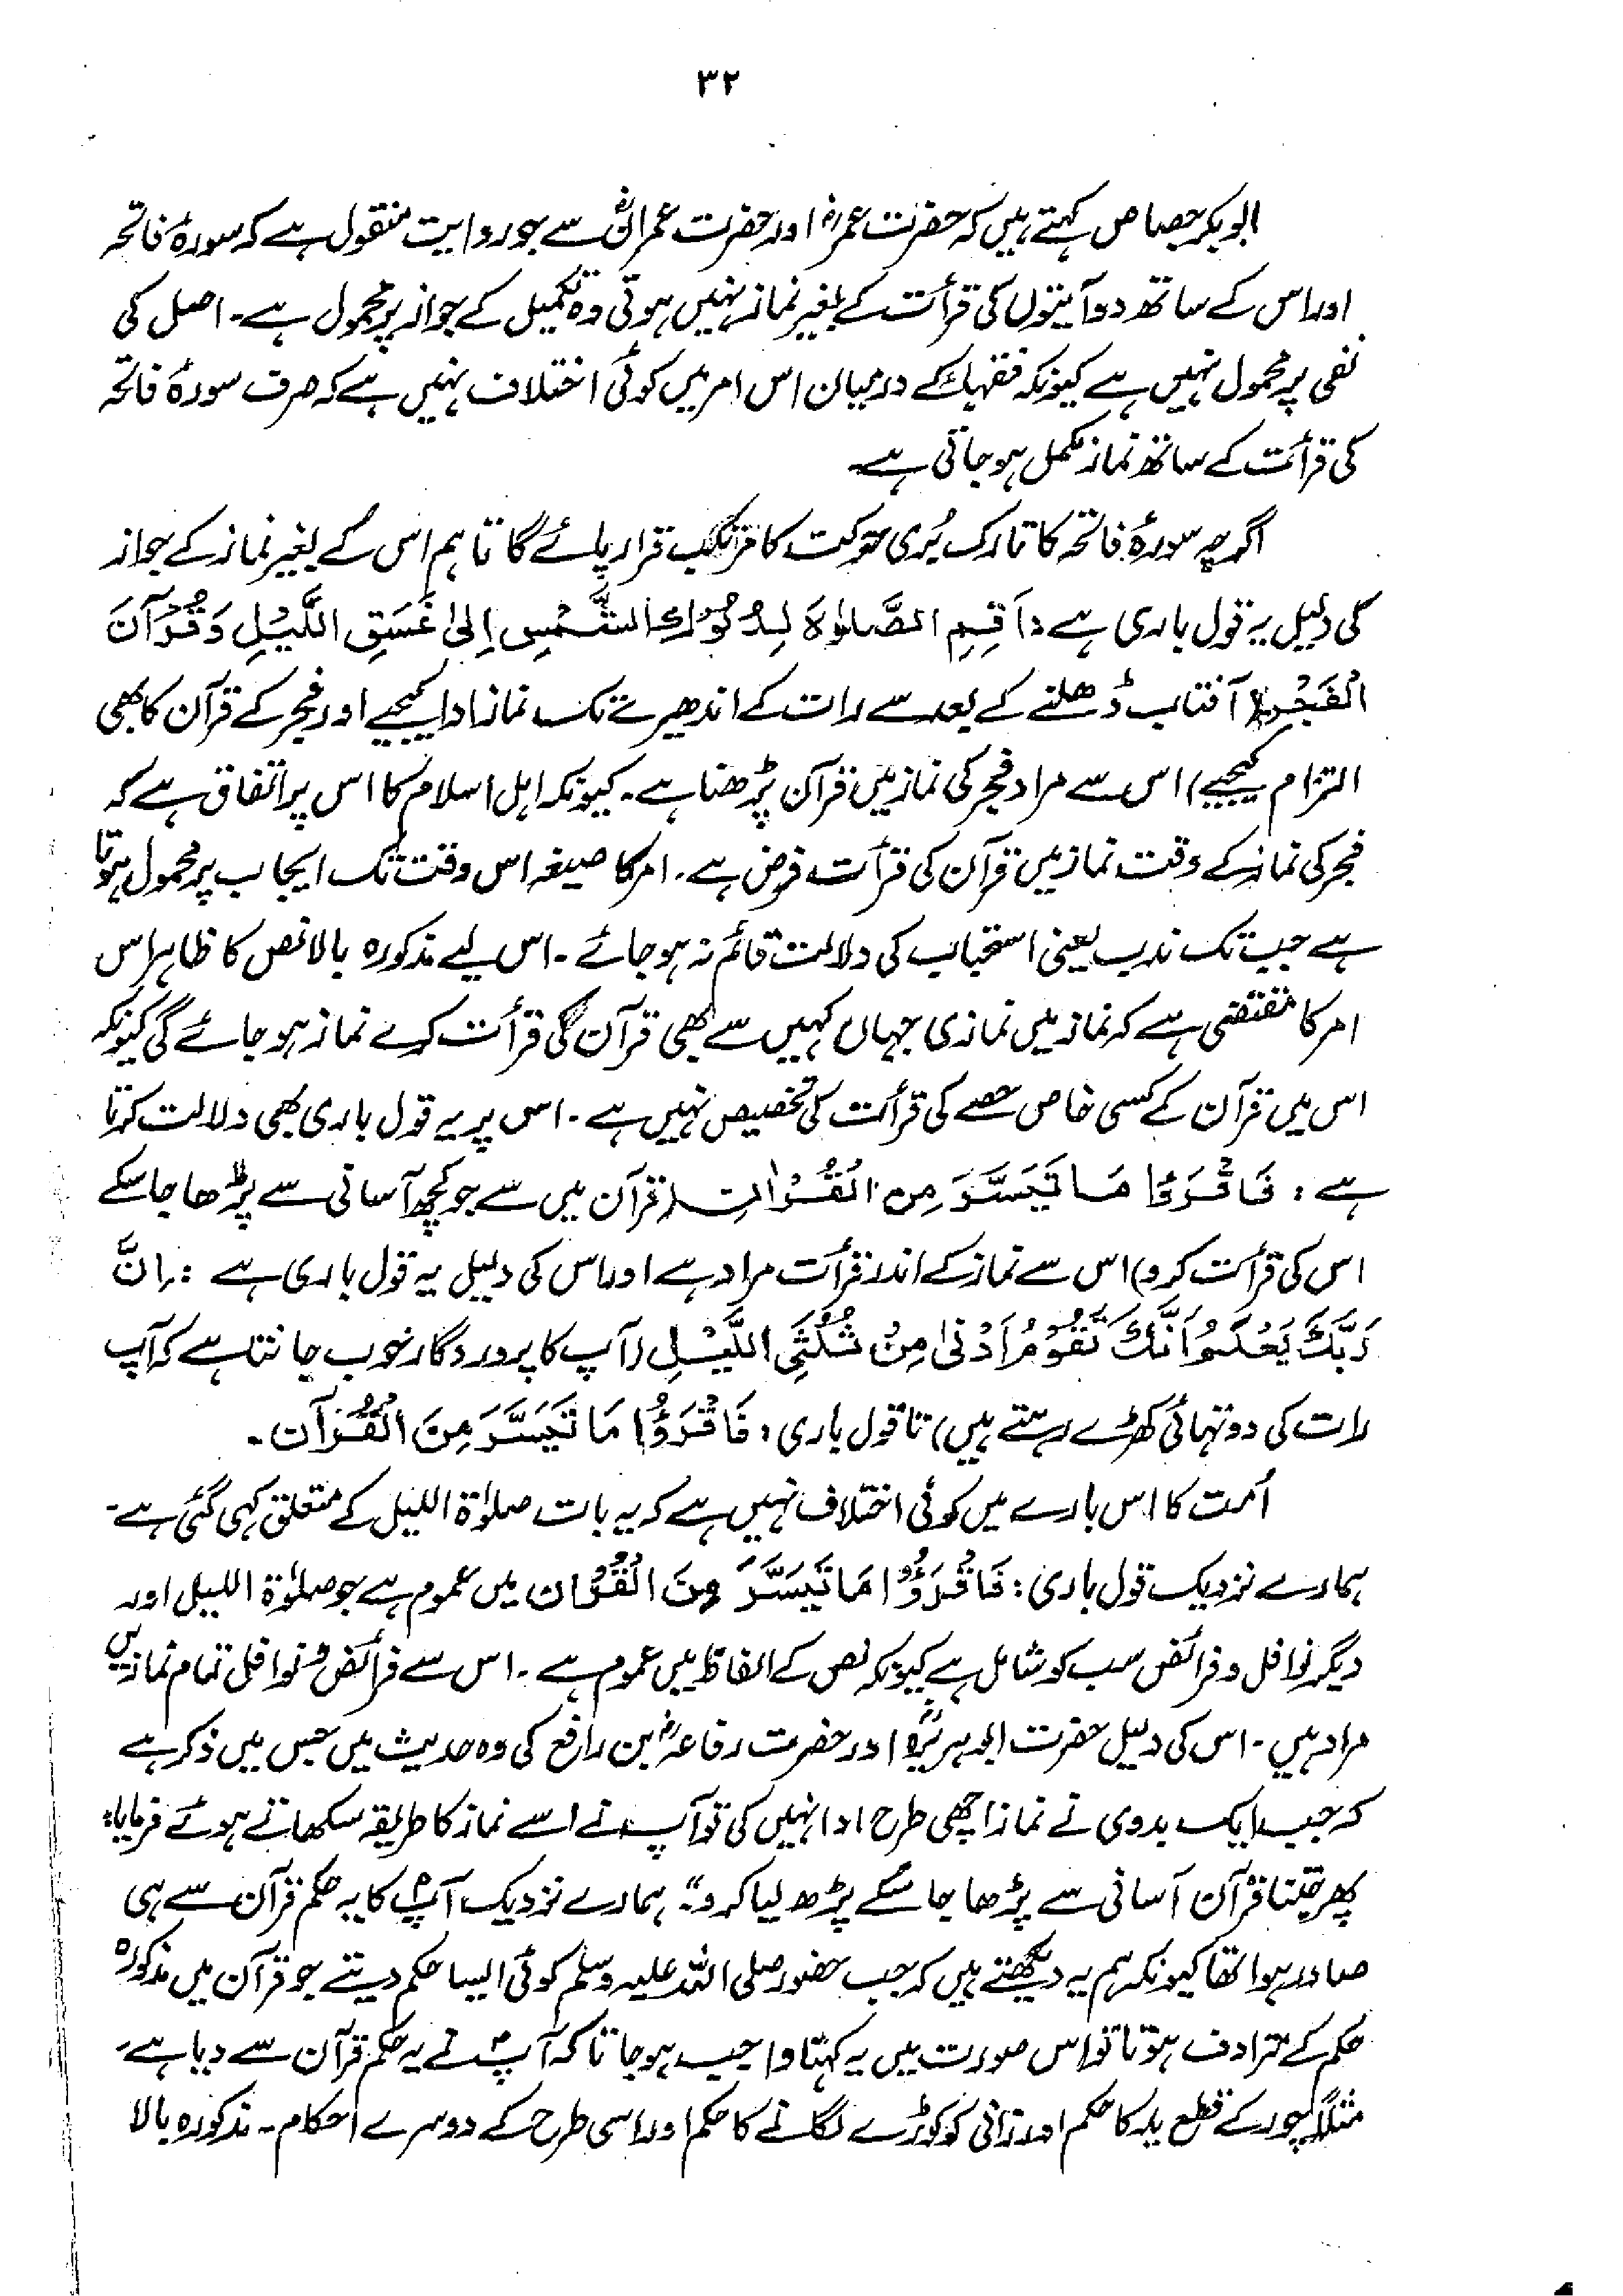 ۳۲
ابوبکر جصاص کہتے ہیں کہ حضرت عمرؓ اور حضرت عمرانؓ سے جو روایت منقول ہے کہ سورۂ فاتحہ
اور اس کے ساتھ دو آیتوں کی قرأت کے بغیر نماز نہیں ہوتی وہ تکمیل کے جواز پر محمول ہے۔ اصل کی
نفی پر محمول نہیں ہے کیونکہ فقہاء کے درمیان اس امر میں کوئی اختلاف نہیں ہے کہ صرف سورۂ فاتحہ
کی قرأت کے ساتھ نماز مکمل ہوجاتی ہے۔
اگرچہ سورۂ فاتحہ کا تارک بُری حرکت کا مرتکب قرار پائے گا تاہم اس کے بغیر نماز کے جواز
کی دلیل یہ قول باری ہے: اَقِمِ الصَّلٰوۃَ لِدُلُوْکِ الشَّمْسِ اِلیٰ غَسَقِ اللَّیْلِ وَقُرْآنَ
الْفَجْرِ (آفتاب ڈھلنے کے بعد سے رات کے اندھیرے تک نماز ادا کیجیے اور فجر کے قرآن کا بھی
التزام کیجیے) اس سے مراد فجر کی نماز میں قرآن پڑھنا ہے۔ کیونکہ اہل اسلام کا اس پر اتفاق ہے کہ
فجر کی نماز کے وقت نماز میں قرآن کی قرأت فرض ہے۔ امر کا صیغہ اس وقت تک ایجاب پر محمول ہوتا
ہے جب تک ندب یعنی استحباب کی دلالت قائم نہ ہوجائے۔ اس لیے مذکورہ بالا نص کا ظاہر اس
امر کا مقتضی ہے کہ نماز میں نمازی جہاں کہیں سے بھی قرآن کی قرأت کرے نماز ہوجائے گی کیونکہ
اس میں قرآن کے کسی خاص حصے کی قرأت کی تخصیص نہیں ہے۔ اس پر یہ قول باری بھی دلالت کرتا
ہے: فَاقْرَءُوْا مَا تَیَسَّرَ مِنَ الْقُرْاٰنِ (قرآن میں سے جو کچھ آسانی سے پڑھا جاسکے
اس کی قرأت کرو) اس سے نماز کے اندر قرأت مراد ہے اور اس کی دلیل یہ قول باری ہے: اِنَّ
رَبَّکَ یَعْلَمُ اَنَّکَ تَقُوْمُ اَدْنیٰ مِنْ ثُلُثَیِ اللَّیْلِ (آپ کا پروردگار خوب جانتا ہے کہ آپ
رات کی دو تہائی کھڑے رہتے ہیں) تا قول باری: فَاقْرَؤُا مَا تَیَسَّرَ مِنَ الْقُرْآن۔
اُمت کا اس بارے میں کوئی اختلاف نہیں ہے کہ یہ بات صلوٰۃ اللیل کے متعلق کہی گئی ہے۔
ہمارے نزدیک قول باری: فَاقْرَؤُوْا مَا تَیَسَّرَ مِنَ الْقُرْاٰن میں عموم ہے جو صلوٰۃ اللیل اور
دیگر نوافل و فرائض سب کو شامل ہے کیونکہ نص کے الفاظ میں عموم ہے۔ اس سے فرائض و نوافل تمام نمازیں
مراد ہیں۔ اس کی دلیل حضرت ابوہریرہؓ اور حضرت رفاعہؓ بن رافع کی وہ حدیث میں جس میں ذکر ہے
کہ جب ایک بدوی نے نماز اچھی طرح ادا نہیں کی تو آپ نے اسے نماز کا طریقہ سکھاتے ہوئے فرمایا:
پھر جتنا قرآن آسانی سے پڑھا جاسکے پڑھ لیا کرو"۔ ہمارے نزدیک آپؐ کا یہ حکم قرآن سے ہی
صادر ہوا تھا کیونکہ ہم یہ دیکھتے ہیں کہ جب حضور صلی اللہ علیہ وسلم کوئی ایسا حکم دیتے جو قرآن میں مذکورہ
حکم کے مترادف ہوتا تو اس صورت میں یہ کہنا واجب ہوجاتا کہ آپؐ نے یہ حکم قرآن سے دیا ہے،
مثلاً چور کے قطع ید کا حکم اور زانی کو کوڑے لگانے کا حکم اور اسی طرح کے دوسرے احکام۔ مذکورہ بالا